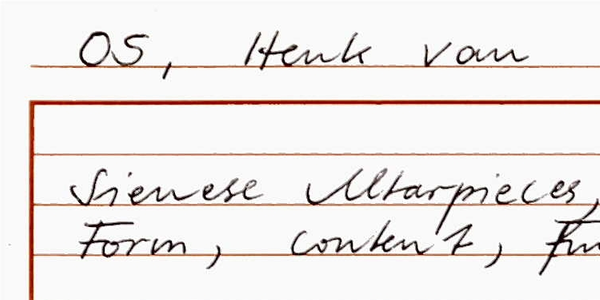 OS, Henk van
Sienese Altarpieces,
Form, Content,